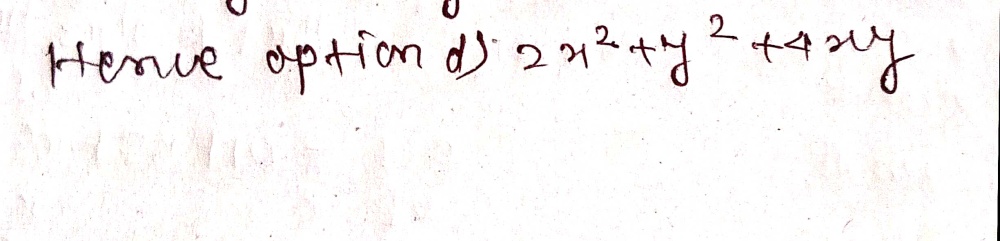 Hence option d) 2x²+y²+4xy